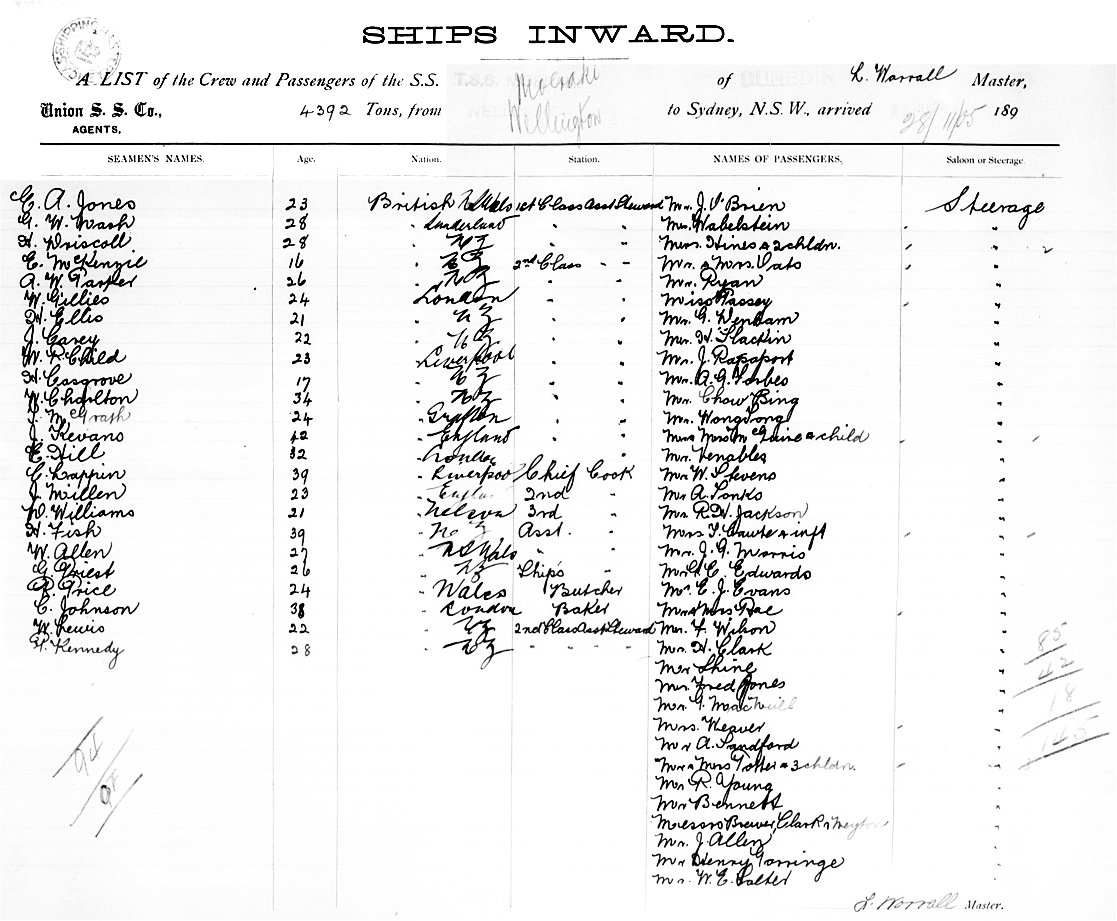 SHIPS INWARD.
A LIST of the Crew and Passengers of the S.S. Moeraki of L. Worrall Master,
Union S. S. Co., AGENTS, 4392 Tons, from Wellington to Sydney, N.S.W., arrived 28/11/05 189
SEAMEN'S NAMES. Age. Nation. Station. NAMES OF PASSENGERS. Saloon or Steerage.
E. A. Jones 23 British N S Wales 1st Class Asst Steward Mr. J. O'Brien Steerage
G. W. Wash 28 " Sunderland " " Mr. Wabelstein "
H. Driscoll 28 " N Z " " Mrs. Hines & 2 chldn. " 2
E. McKenzie 16 " N Z 2nd Class " " Mr. & Mrs. Oats "
A. W. Parker 26 " N Z " " Mr. Ryan "
W. Gillies 24 London " " Miss Passey "
H. Ellis 21 " N Z " " Mr. G. Denham "
J. Carey 22 " N Z " " Mr. H. "
W. R. Child 23 " Liverpool " " Mr. J. Rapaport "
H. Cosgrove 17 " N Z " " Mr. A. G. Forbes "
W. Charlton 34 " N Z " " Mr. Chow Bing "
J. McGrath 24 " Grafton " " Mr. Wong "
J. Kevans 42 " England " " Mr & Mrs & child "
E. Hill 32 " London " " Mr. Venables "
C. Lappin 39 " Liverpool Chief Cook Mr. W. Stevens "
J. Millen 23 " England 2nd " Mr A. Tonks "
W. Williams 21 " Nelson 3rd " Mr. R. W. Jackson "
H. Fish 39 " N Z Asst. " Mrs & inft "
W. Allen 27 " N S Wales " " Mr. J. G. Morris "
G. Priest 26 " N Z Ship's " Mr. E. Edwards "
R. Price 24 " Wales " Butcher Mr. E. J. Evans "
C. Johnson 38 " London " Baker Mr & Mrs Rae "
W. Lewis 22 " N Z 2nd Class Asst Steward Mr. F. Wilson "
H. Kennedy 28 " N Z " " " " Mr. H. Clark "
Mr Shine "
Mr. Fred Jones "
Mr. G. MacNeill "
Mrs. Weaver "
Mr A. Sandford "
Mr & Mrs Potter & 3 chldn. "
Mr R. Young "
Mr Bennett "
Messrs Brewer, Clark & "
Mr. J. Allen "
Mr Henry Gorringe "
Mr. W. E. Salter "
85
42
18
145
94
L. Worrall Master.